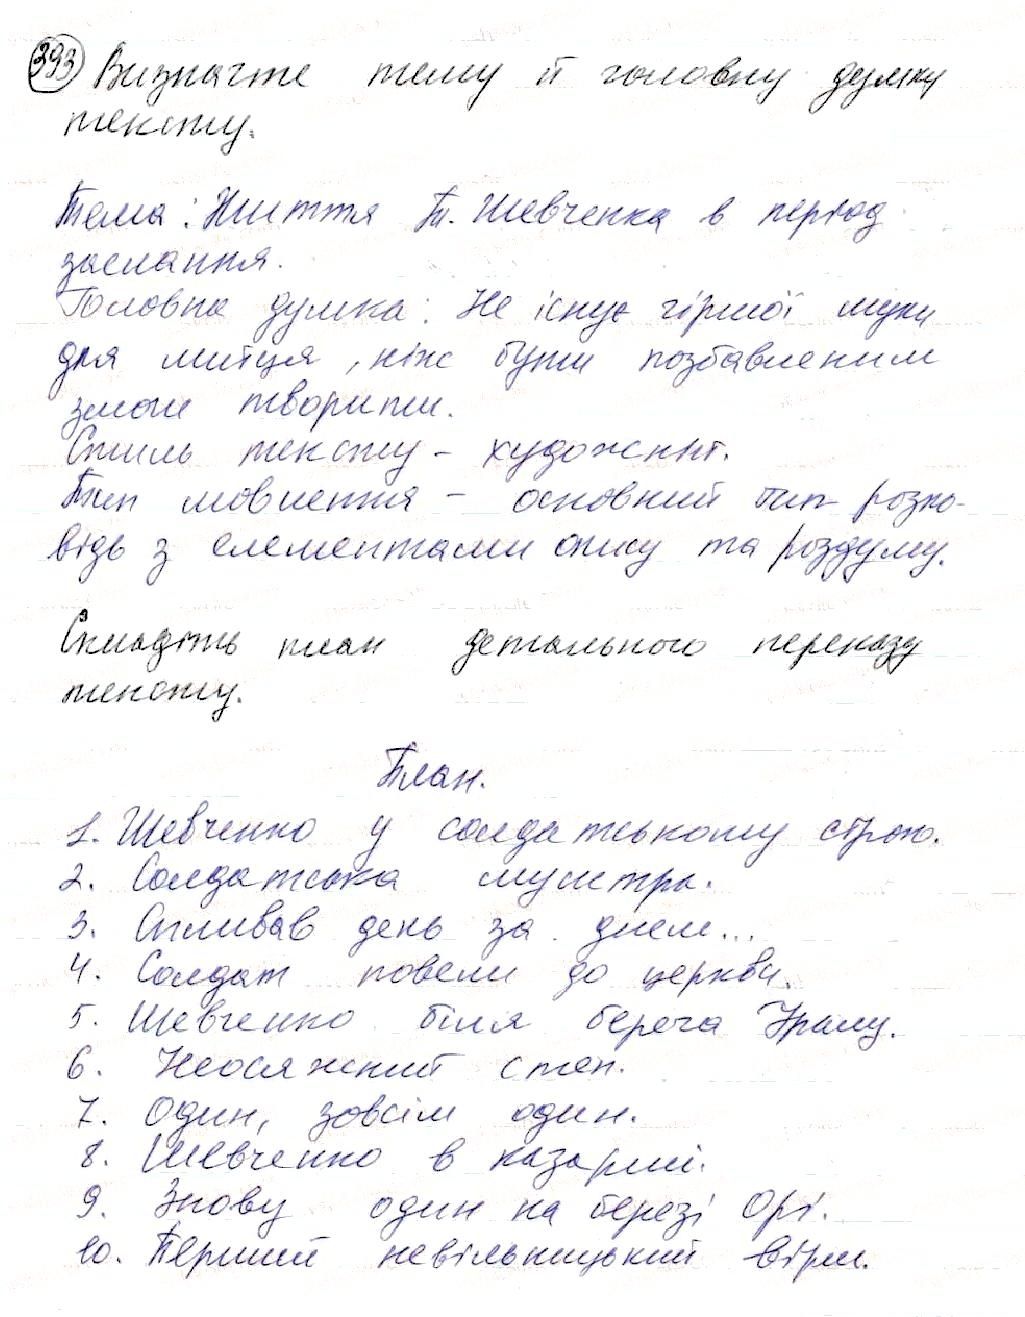 393 Визначте тему й головну думку
тексту.
Тема: Життя Т. Шевченка в період
заслання.
Головна думка: Не існує гіршої муки
для митця, ніж бути позбавленим
змоги творити.
Стиль тексту - художній.
Тип мовлення - основний тип розпо-
відь з елементами опису та роздуму.
Складіть план детального переказу
тексту.
План.
1. Шевченко у солдатському строю.
2. Солдатська муштра.
3. Спливав день за днем...
4. Солдат повели до церкви.
5. Шевченко біля берега Уралу.
6. Неосяжний степ.
7. Один, зовсім один.
8. Шевченко в казармі.
9. Знову один на березі Орі.
10. Перший невільницький вірш.